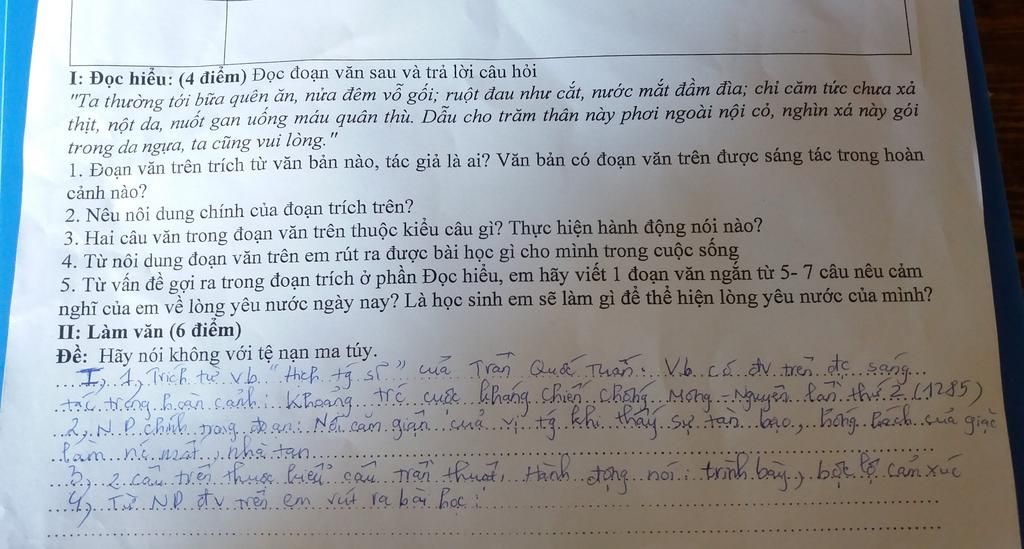 I: Đọc hiểu: (4 điểm) Đọc đoạn văn sau và trả lời câu hỏi
"Ta thường tới bữa quên ăn, nửa đêm vỗ gối; ruột đau như cắt, nước mắt đầm đìa; chỉ căm tức chưa xả
thịt, nột da, nuốt gan uống máu quân thù. Dẫu cho trăm thân này phơi ngoài nội cỏ, nghìn xá này gói
trong da ngựa, ta cũng vui lòng."
1. Đoạn văn trên trích từ văn bản nào, tác giả là ai? Văn bản có đoạn văn trên được sáng tác trong hoàn
cảnh nào?
2. Nêu nôi dung chính của đoạn trích trên?
3. Hai câu văn trong đoạn văn trên thuộc kiểu câu gì? Thực hiện hành động nói nào?
4. Từ nôi dung đoạn văn trên em rút ra được bài học gì cho mình trong cuộc sống
5. Từ vấn đề gợi ra trong đoạn trích ở phần Đọc hiểu, em hãy viết 1 đoạn văn ngắn từ 5- 7 câu nêu cảm
nghĩ của em về lòng yêu nước ngày nay? Là học sinh em sẽ làm gì để thể hiện lòng yêu nước của mình?
II: Làm văn (6 điểm)
Đề: Hãy nói không với tệ nạn ma túy.
I, 1, Trích từ vb "Hịch tg sĩ" của Trần Quốc Tuấn. Vb có đv trên đc sáng
tác trong hoàn cảnh: Khoảng trc cuộc kháng chiến chống Mông - Nguyên lần thứ 2 (1285)
2, N D chính trong đoạn: Nỗi căm giận của vị tg khi thấy sự tàn bạo, hống hách của giặc
làm nc mất, nhà tan
3, 2 câu trên thuộc kiểu câu trần thuật, Hành động nói: trình bày, bộc lộ cảm xúc
4, Từ ND đv trên em rút ra bài học: